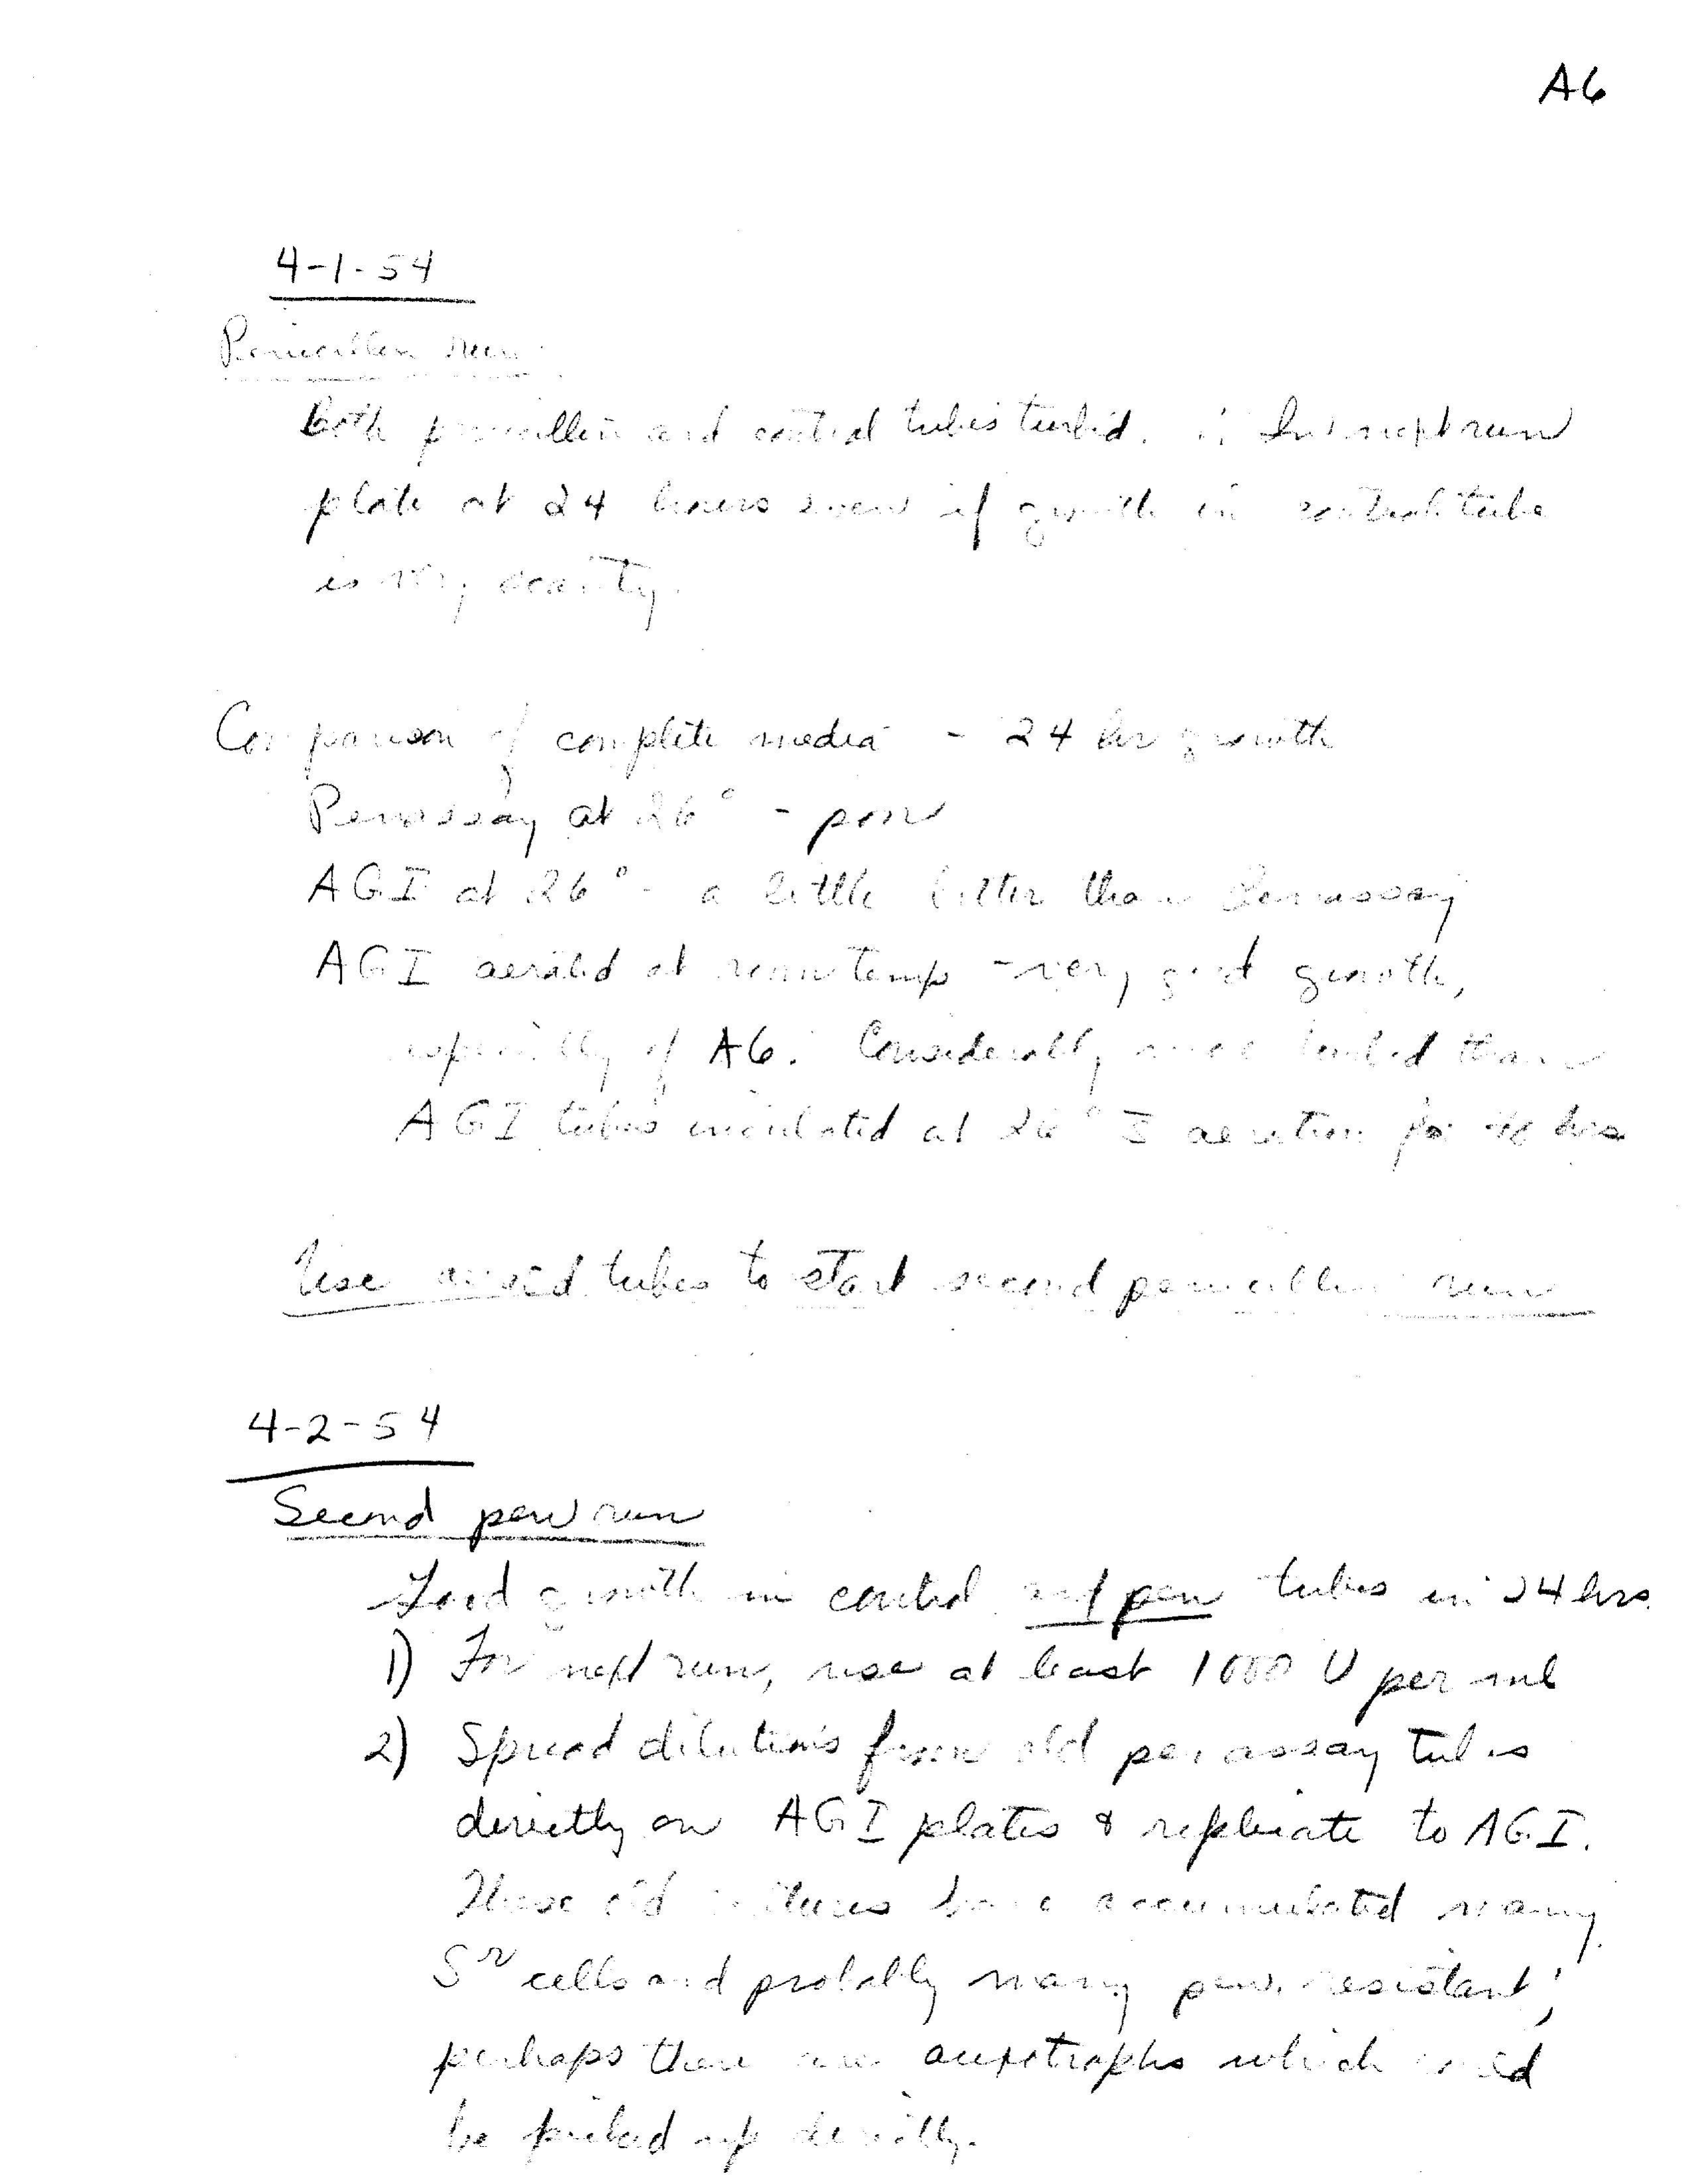 A6
4-1-54
Penicillin run
Both penicillin and control tubes turbid. ∴ In next run
plate at 24 hours even if growth in control tube
is very scanty.
Comparison of complete media - 24 hr growth
Penassay at 26° - poor
AGI at 26° - a little better than Penassay
AGI aerated at room temp - very good growth,
especially of A6. Considerably more turbid than
AGI tubes incubated at 26° aeration for hrs
Use aerated tubes to start second penicillin run
4-2-54
Second pen run
Good growth in control and pen tubes in 24 hrs.
1) For next run, use at least 1000 U per ml
2) Spread dilutions from old penassay tubes
directly on AGI plates & replicate to AGI.
These old cultures have accumulated many
Sʳ cells and probably many pen. resistant;
perhaps there are auxotrophs which could
be picked up directly.